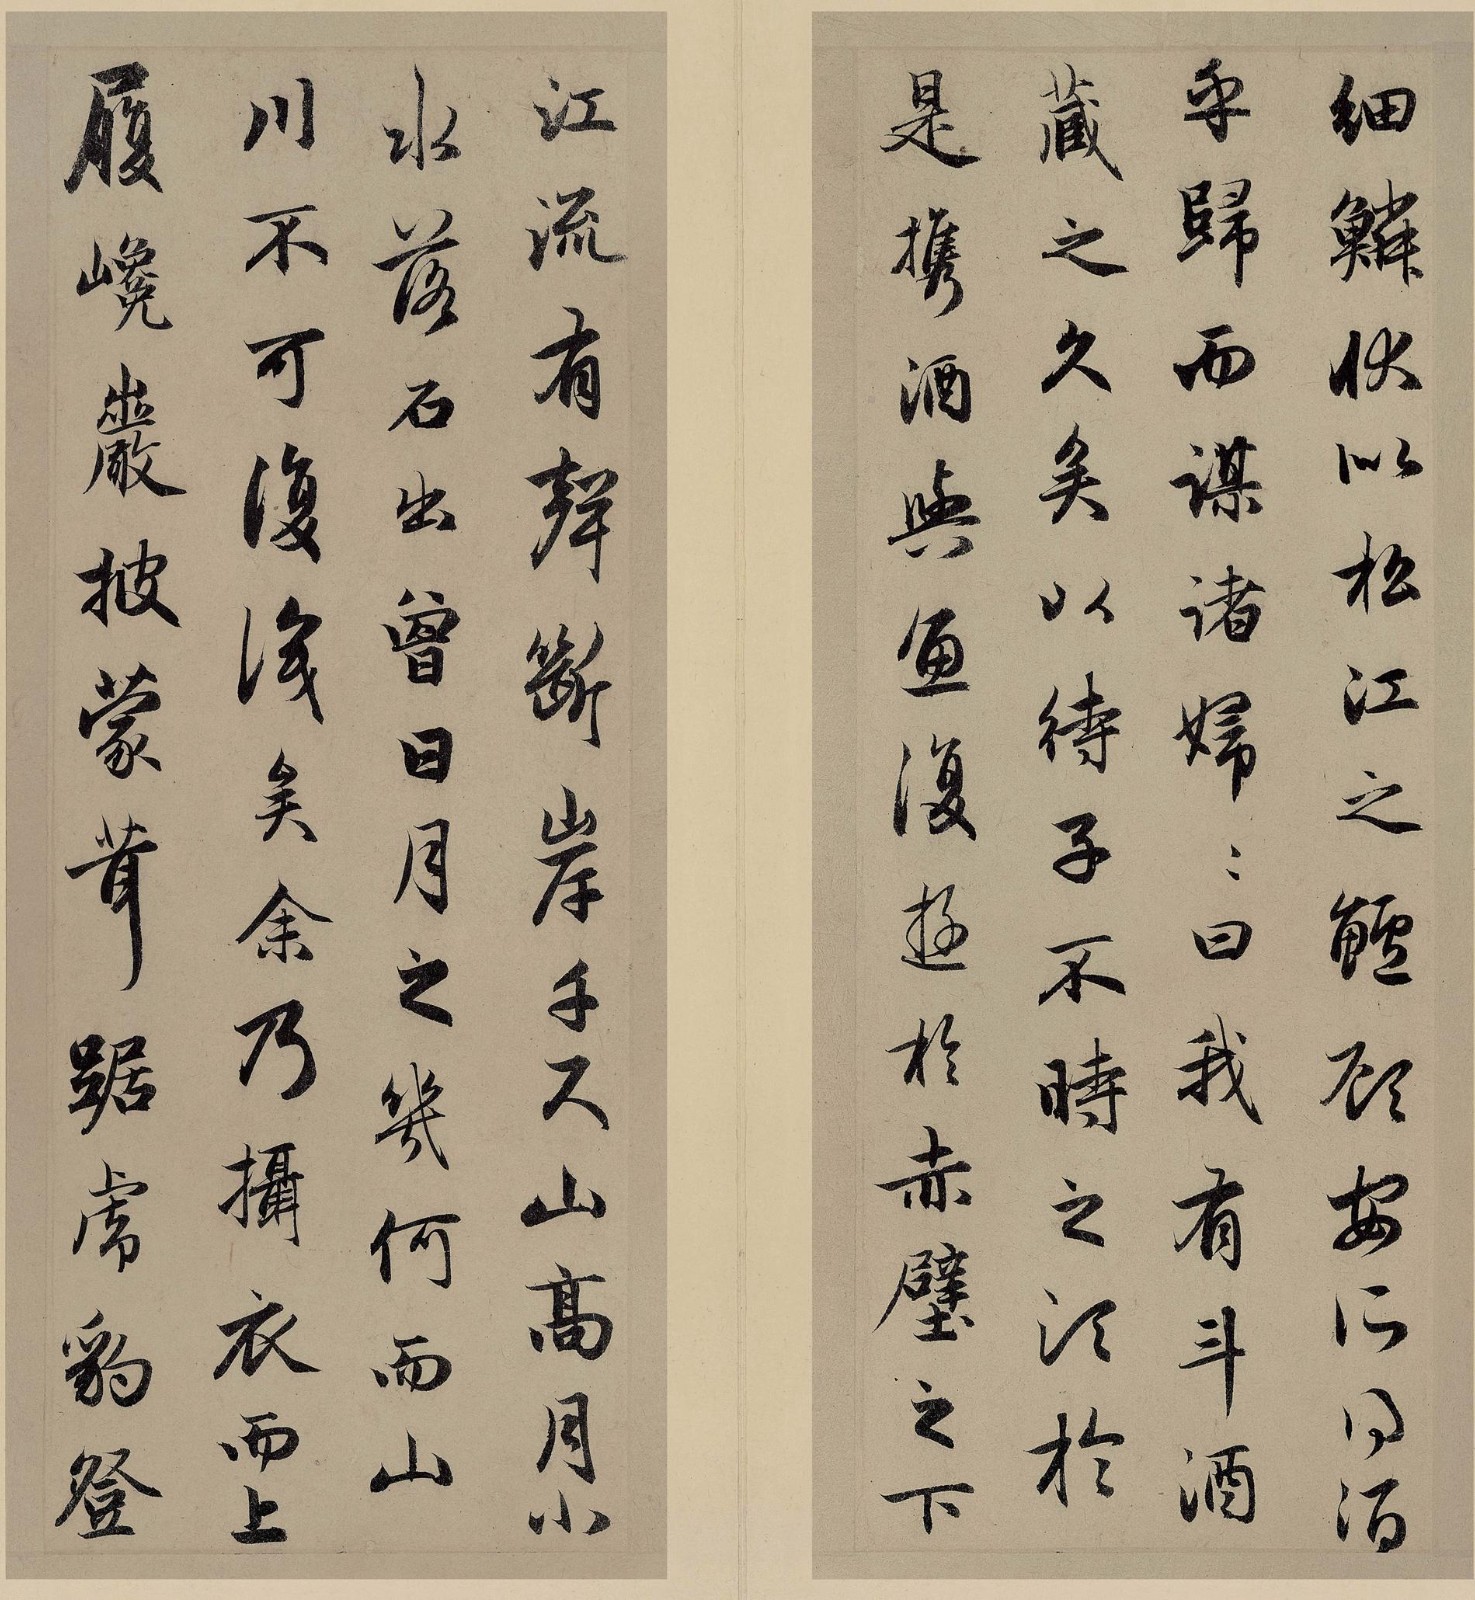 細鱗狀似松江之鱸顧安所得酒
乎歸而謀諸婦〻曰我有斗酒
藏之久矣以待子不時之須於
是携酒與魚復遊於赤壁之下
江流有聲斷岸千尺山高月小
水落石出曾日月之幾何而山
川不可復識矣余乃攝衣而上
履巉巖披蒙茸踞虎豹登